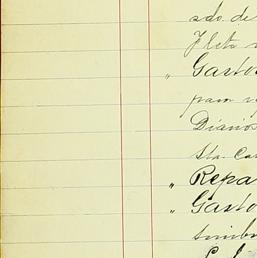 sdo. de
Flete
" Gastos
para
Diarios
Sta. Ca
" Repa
" Gasto